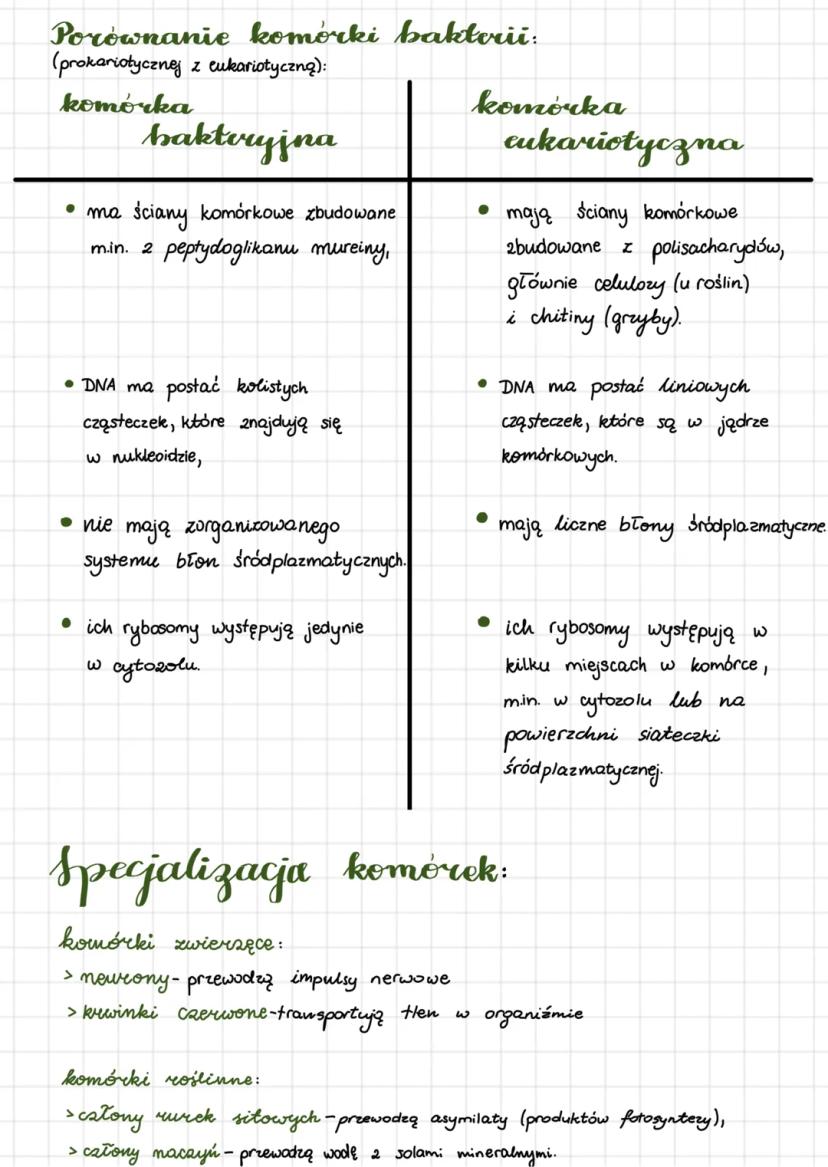 Porównanie komórki bakterii:
(prokariotycznej z eukariotyczną):
komórka
bakteryjna
• ma ściany komórkowe zbudowane
m.in. z peptydoglikanu mureiny,
• DNA ma postać kolistych
cząsteczek, które znajdują się
w nukleoidzie,
• nie mają zorganizowanego
systemu błon śródplazmatycznych.
• ich rybosomy występują jedynie
w cytozolu.
komórka
eukariotyczna
• mają ściany komórkowe
zbudowane z polisacharydów,
głównie celulozy (u roślin)
i chityny (grzyby).
• DNA ma postać liniowych
cząsteczek, które są w jądrze
komórkowych.
• mają liczne błony śródplazmatyczne.
• ich rybosomy występują w
kilku miejscach w komórce,
m.in. w cytozolu lub na
powierzchni siateczki
śródplazmatycznej.
Specjalizacja komórek:
komórki zwierzęce:
> neurony - przewodzą impulsy nerwowe
> krwinki czerwone - transportują tlen w organiźmie
komórki roślinne:
> człony rurek sitowych - przewodzą asymilaty (produktów fotosyntezy),
> człony naczyń - przewodzą wodę z solami mineralnymi.